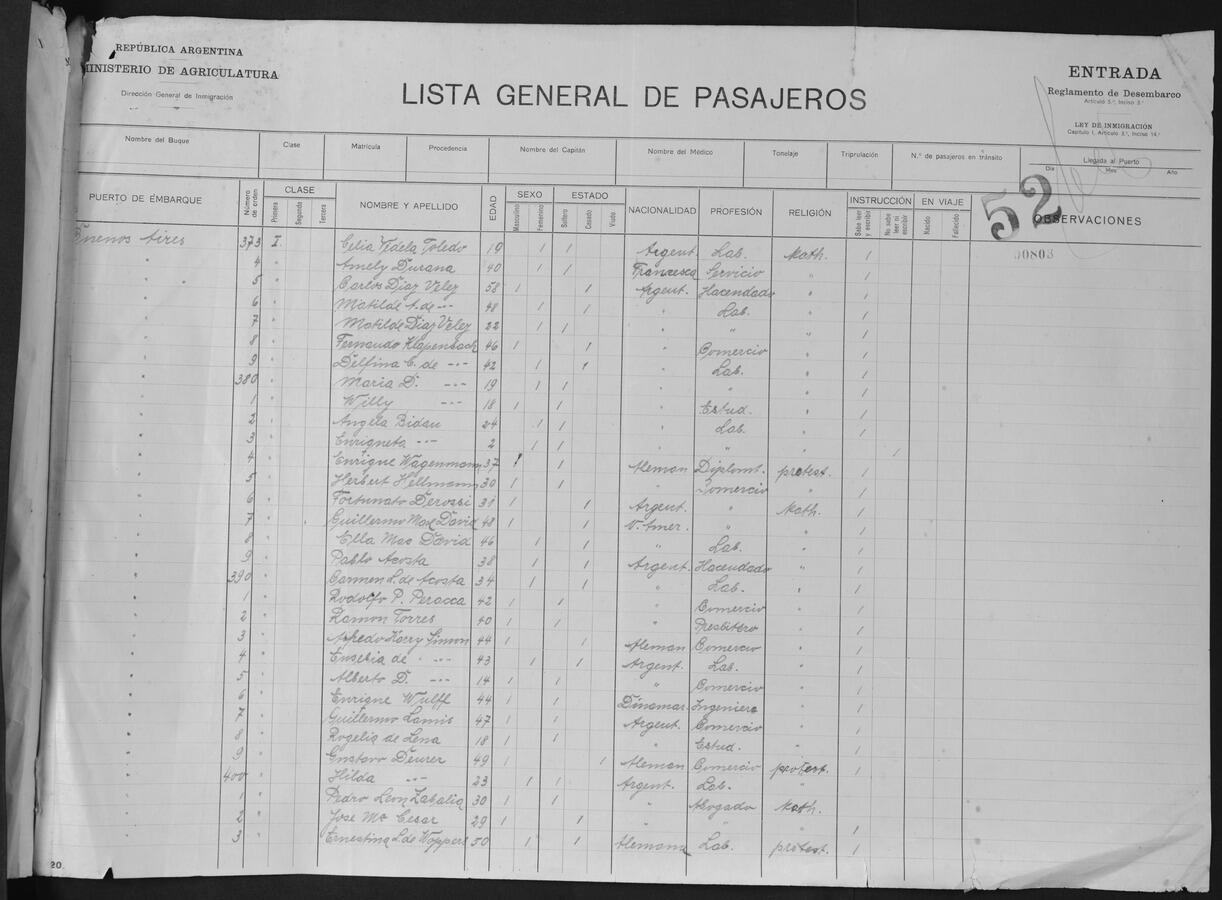 REPÚBLICA ARGENTINA
MINISTERIO DE AGRICULTURA
Dirección General de Inmigración
LISTA GENERAL DE PASAJEROS
ENTRADA
Reglamento de Desembarco
Artículo 5.º, Inciso 3.º
LEY DE INMIGRACIÓN
Capítulo I, Artículo 3.º, Inciso 14.º
Nombre del Buque Clase Matrícula Procedencia Nombre del Capitán Nombre del Médico Tonelaje Tripulación N.º de pasajeros en tránsito Llegada al Puerto
Día Mes Año
52
PUERTO DE EMBARQUE Número de orden CLASE Primera Segunda Tercera NOMBRE Y APELLIDO EDAD SEXO Masculino Femenino ESTADO Soltero Casado Viudo NACIONALIDAD PROFESIÓN RELIGIÓN INSTRUCCIÓN Sabe leer y escribir No sabe leer ni escribir EN VIAJE Nacido Fallecido OBSERVACIONES
00803
Buenos Aires 373 I. Celia Videla Toledo 19 / / Argent. Lab. Kath. /
" 4 " Amely Durana 40 / / Francesca Servicio " /
" 5 " Carlos Diaz Velez 58 / / Argent. Hacendado " /
" 6 " Matilde A. de -·- 48 / / " Lab. " /
" 7 " Matilde Diaz Velez 22 / / " " " /
" 8 " Fernando Klapenbach 46 / / " Comercio " /
" 9 " Delfina C. de -·- 42 / / " Lab. " /
" 380 " Maria D. -·- 19 / / " " " /
" 1 " Willy -·- 18 / / " Estud. " /
" 2 " Angela Bidau 24 / / " Lab. " /
" 3 " Enriqueta -·- 2 / / " " " /
" 4 " Enrique Wagenmann 37 / / Aleman Diplomt. protest. /
" 5 " Herbert Hellmann 30 / / " Comercio " /
" 6 " Fortunato Derossi 31 / / Argent. " Kath. /
" 7 " Guillermo Mac David 48 / / V. Amer. " " /
" 8 " Ella Mac David 46 / / " Lab. " /
" 9 " Pablo Acosta 38 / / Argent. Hacendado " /
" 390 " Carmen L. de Acosta 34 / / " Lab. " /
" 1 " Rodolfo P. Peracca 42 / / " Comercio " /
" 2 " Ramon Torres 40 / / " Presbitero " /
" 3 " Alfredo Harry Simon 44 / / Aleman Comercio " /
" 4 " Eusebia de -·- 43 / / Argent. Lab. " /
" 5 " Alberto D. -·- 14 / / " Comercio " /
" 6 " Enrique Wulff 44 / / Dinamar. Ingeniero " /
" 7 " Guillermo 47 / / Argent. Comercio " /
" 8 " Rogelia de Lena 18 / / " Estud. " /
" 9 " Gustavo Deurer 49 / / Aleman Comercio protest. /
" 400 " Hilda -·- 23 / / Argent. Lab. " /
" 1 " Pedro Leon 30 / / " Abogado Kath. /
" 2 " Jose Ma Cesar 29 / / " " " /
" 3 " Ernestina L. de 50 / / Alemana Lab. protest. /
20.